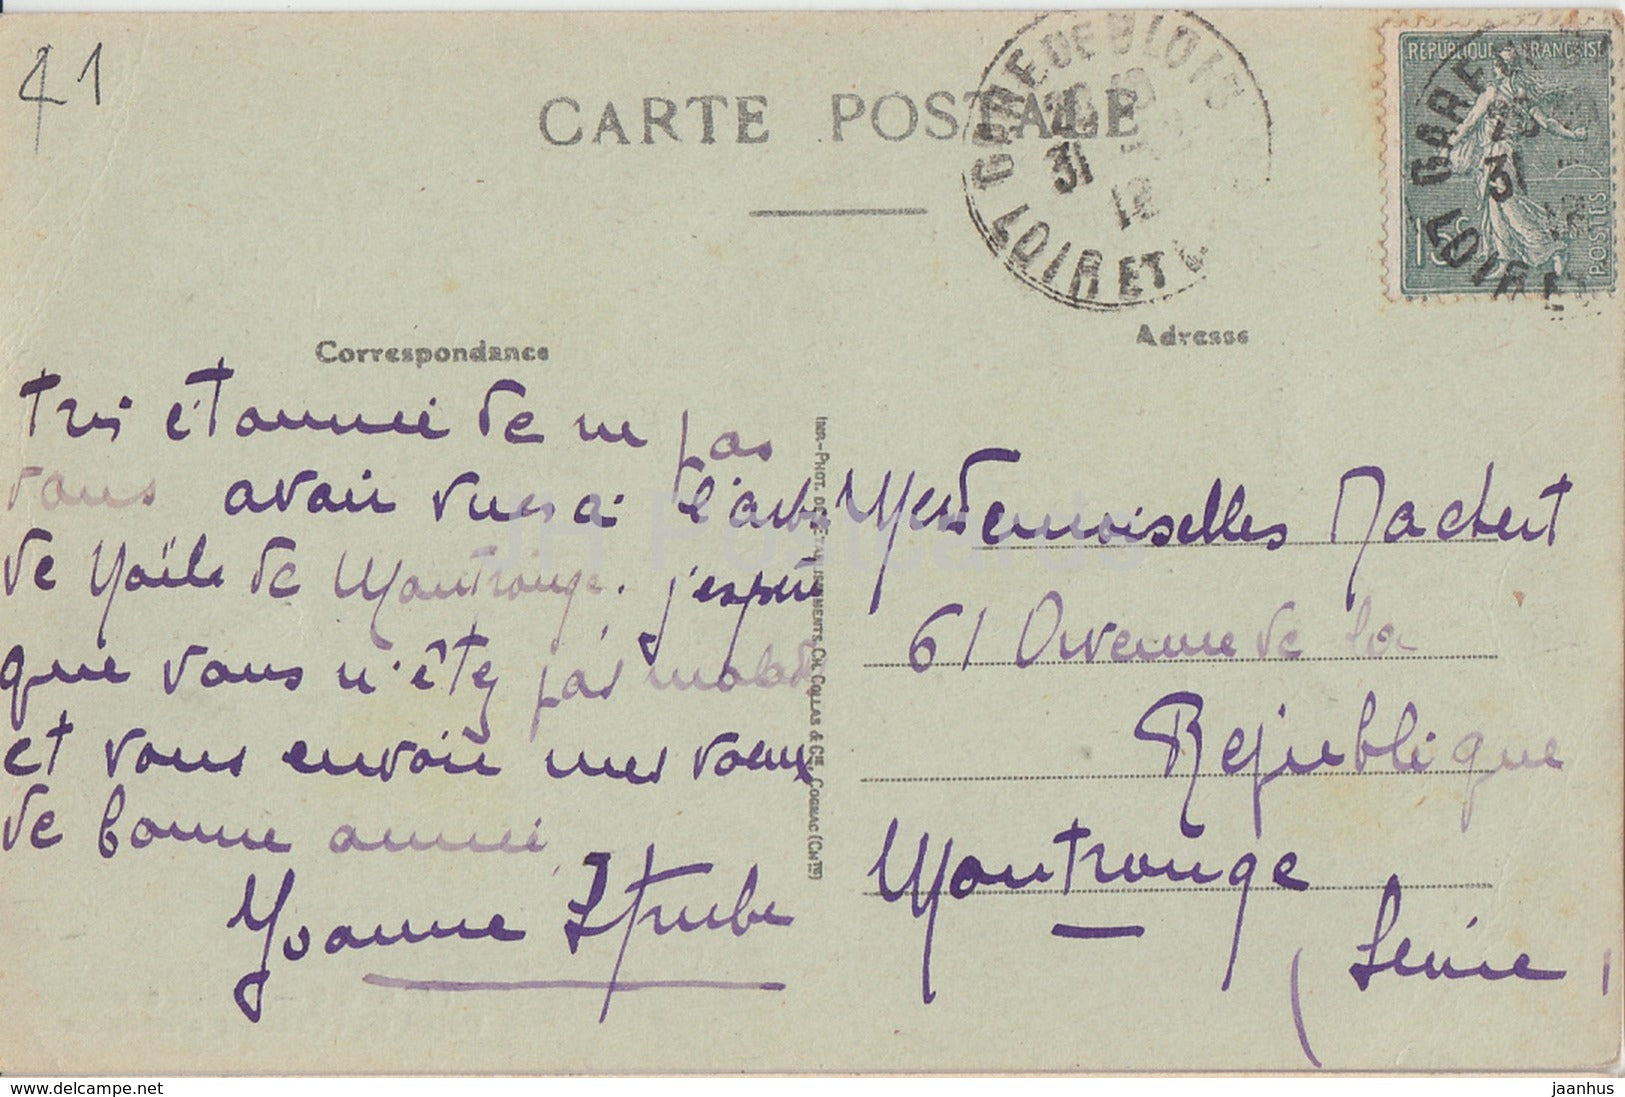 41
CARTE POSTALE
GARE DE BLOIS
31 12
LOIR ET
REPUBLIQUE FRANÇAISE
15c
POSTES
GARE
31 12
LOIR E
Correspondance
Adresse
très étonnée de ne pas
vous avoir vues à l'arbre
de Noële de Montrouge. j'espère
que vous n'êtez pas malade
et vous envoie mes voeux
de bonne année
Yvonne Strube
IMP.-PHOT. DES ETABLISSEMENTS CH. COLLAS & CIE COGNAC (CHTE)
Mesdemoiselles Machert
61 Avenue de la
République
Montrouge
(Seine)
JH Postcards
www.delcampe.net
jaanhus